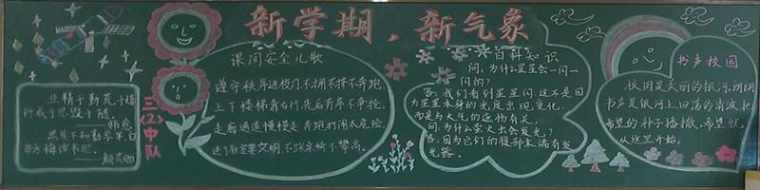 新学期，新气象
业精于勤荒于嬉
行成于思毁于随
韩愈
黑发不知勤学早，白
首方悔读书迟。
——颜真卿
三(2)中队
课间安全儿歌
遵守秩序进校门，不拥不挤不奔跑
上下楼梯靠右行，先后有序不争抢
走廊通道慢慢走，奔跑打闹太危险
进了教室要文明，不
百科知识
问：为什么星星会一闪一
闪的？
答：我们看到星星闪，这不是因
为星星本身的光度出现变化，
而是与大气的遮掩有关。
问：为什么萤火虫会发光？
答：因为它们的腹部末端有发
光器。
书声校园
校园是美丽的银河，朗朗
书声是银河上回荡的
希望的种子播撒，希望就
从这里开始。